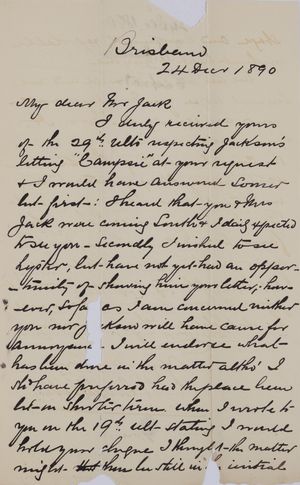 Brisbane
24 Decr 1890
My dear Mr Jack
I duly received yours
of the 29th. ulto respecting Jackson's
letting "Campsie" at your request
& I would have answered sooner
but first: I heard that you & Mrs
Jack were coming South & I daily expected
to see you - Secondly I wished to see
but have not yet had an oppor-
-tunity of showing him your letter, how-
ever, so far as I am concerned neither
you nor Jackson will have cause for
annoyance - I will endorse what
has been done in the matter altho' I
shd have preferred had the place been
let in shorter term. When I wrote to
you on the 19th ult stating I would
hold your cheque I thought the matter
might then be still in its initial